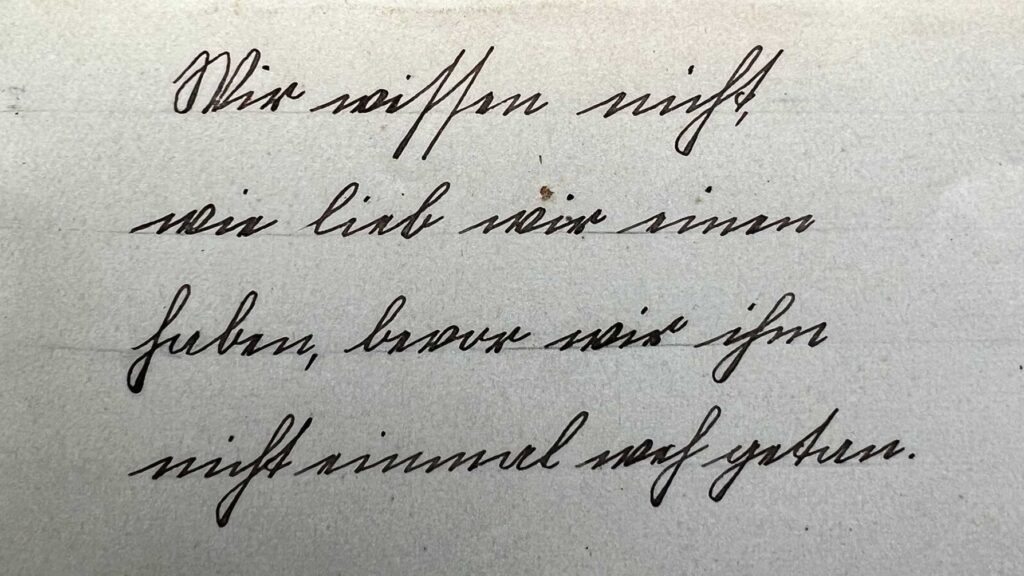 Wir wissen nicht,
wie lieb wir einen
haben, bevor wir ihm
nicht einmal weh getan.